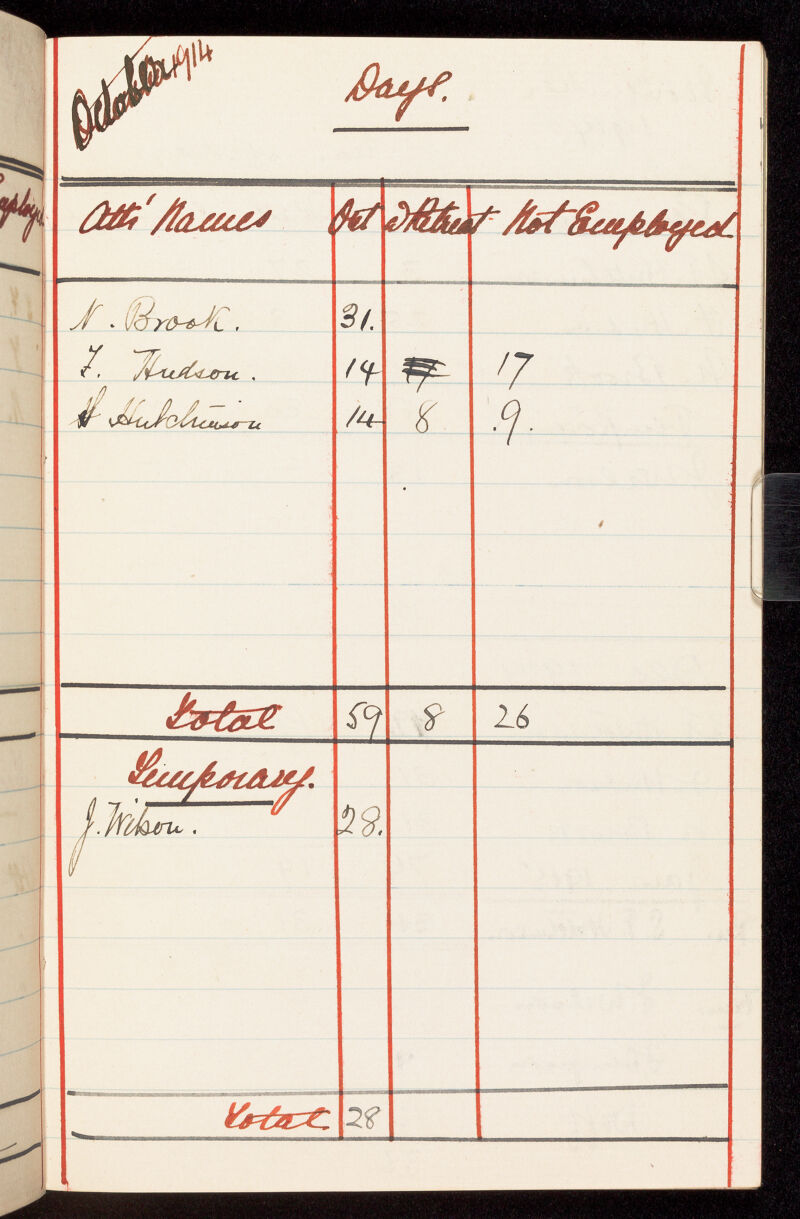 October 1914
Days.
Att's Names Out @ Retreat Not Employed
N. Brook. 31.
F. Hudson. 14 17
H Hutchinson 14 8 .9.
Total 59 8 26
Temporary.
J. Wilson. 28.
Total 28